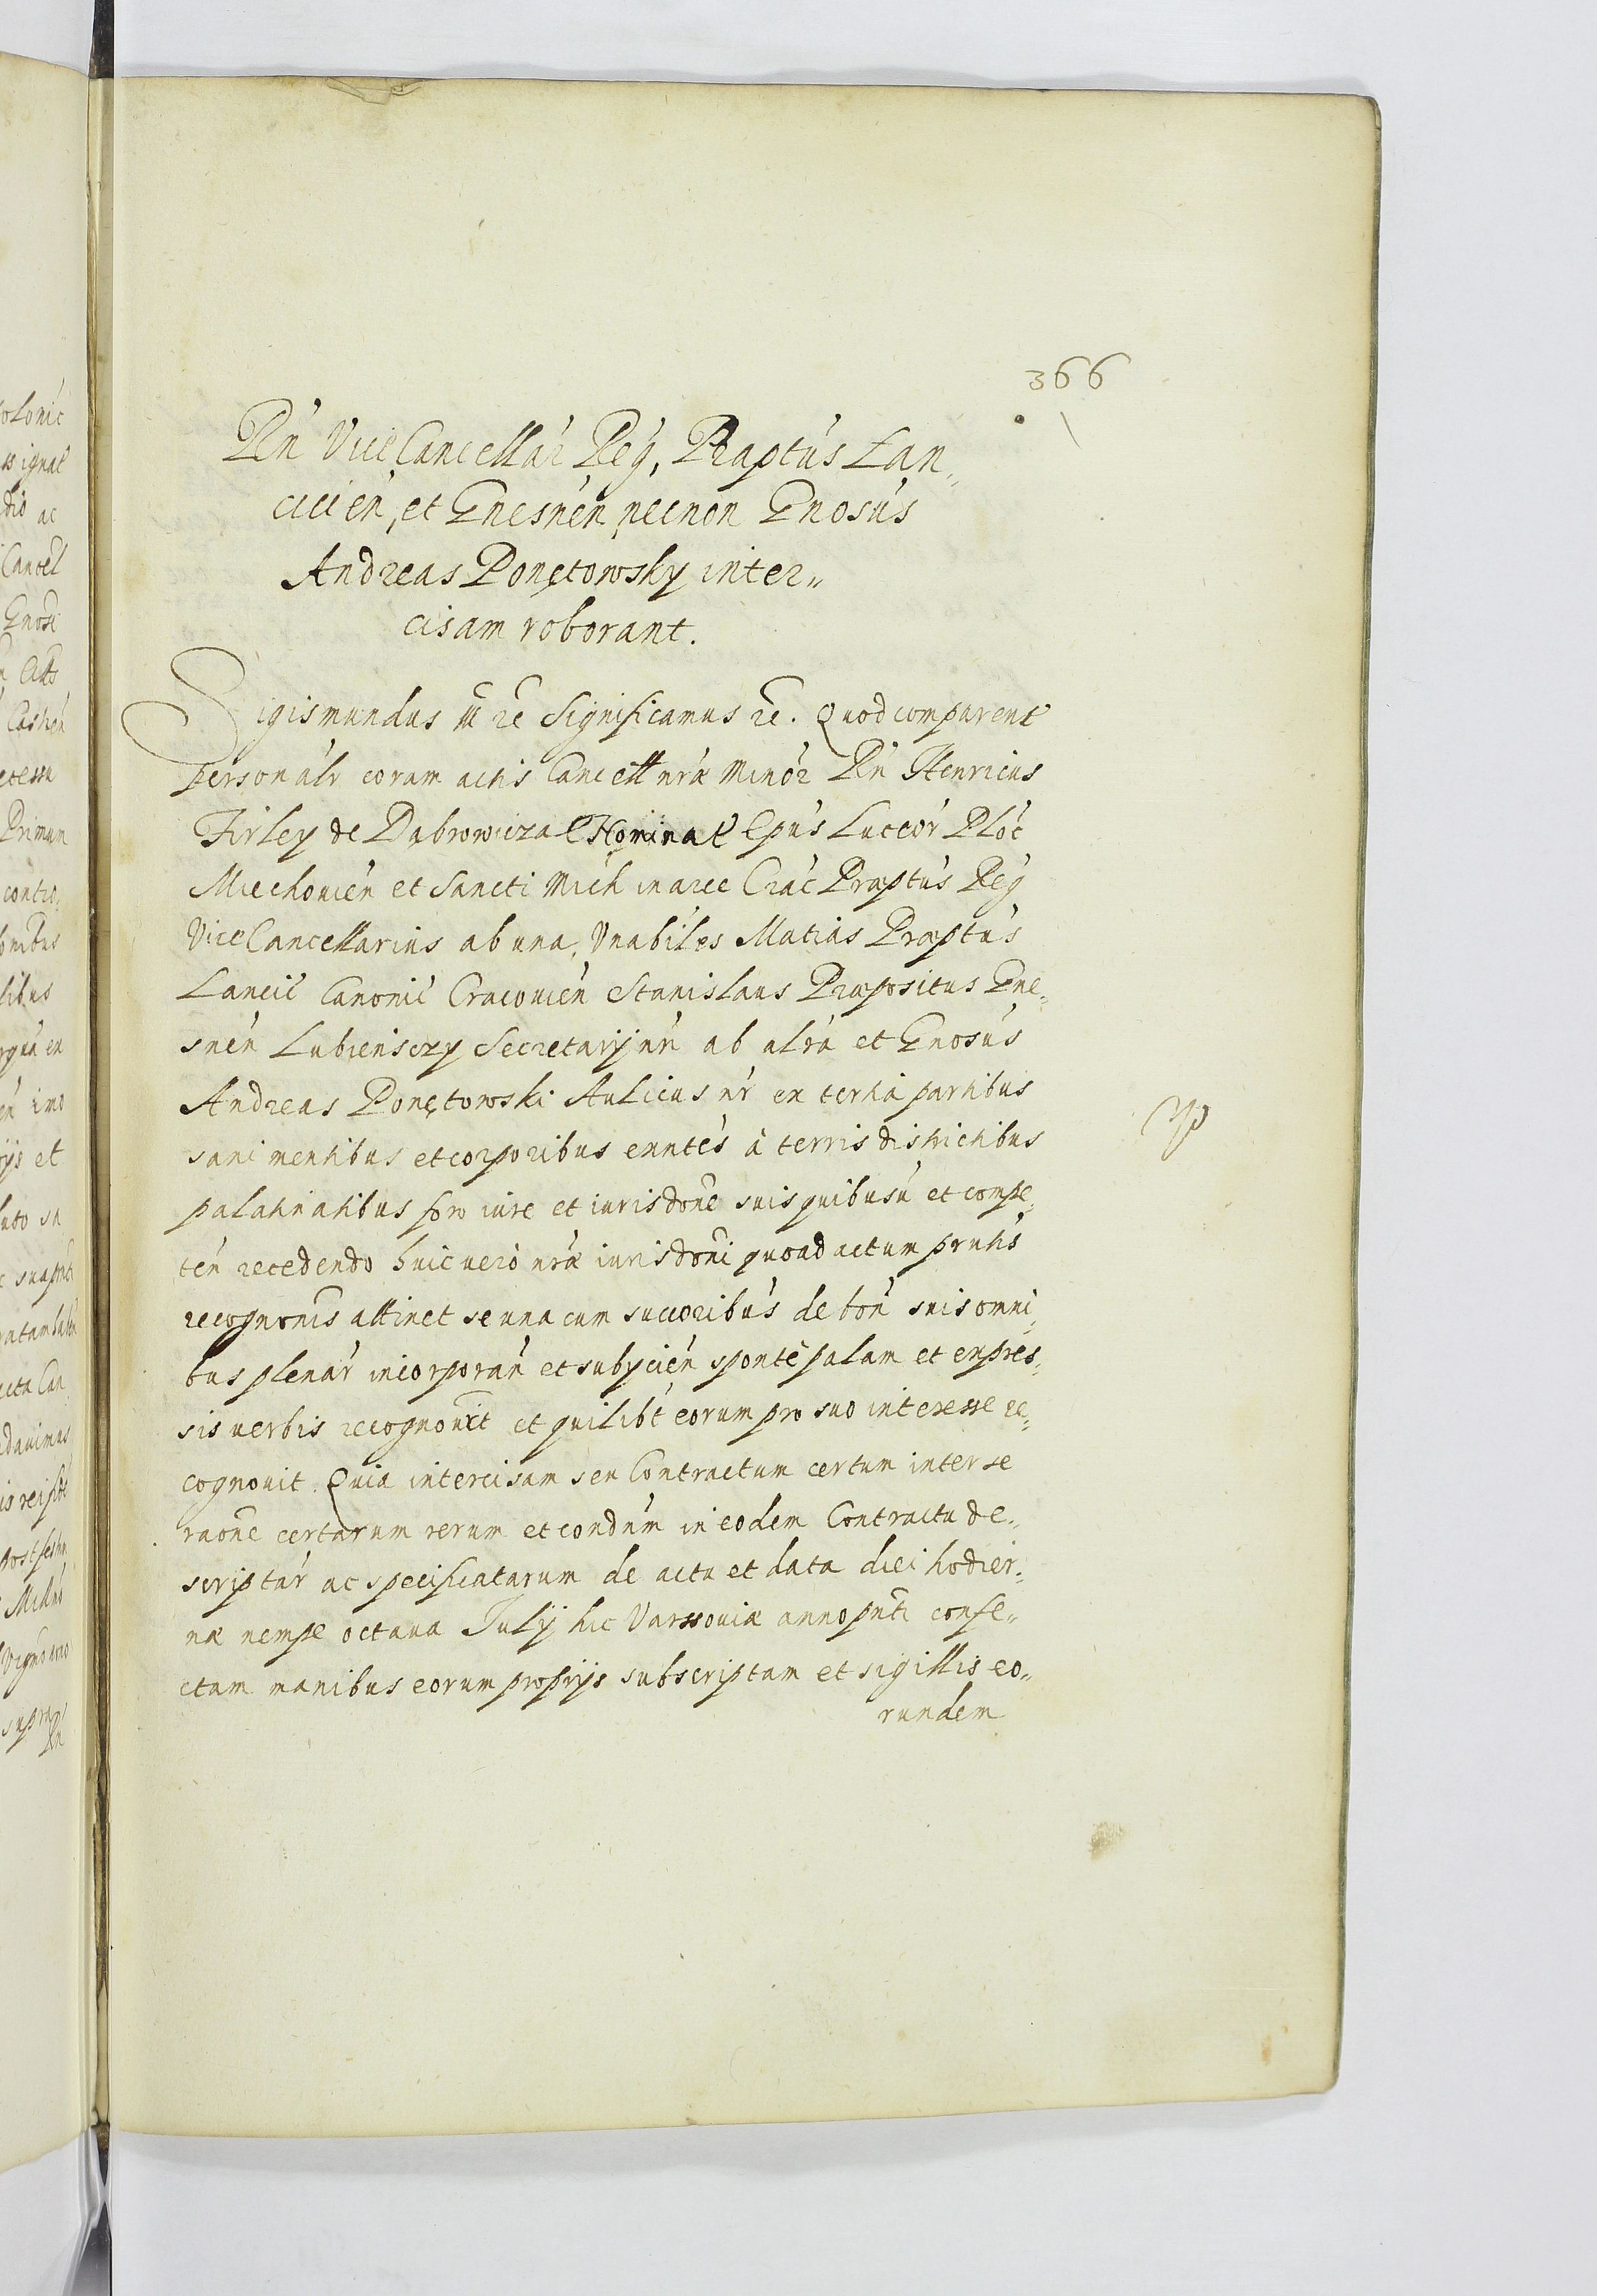 366
Rńd ViceCancellar̃ Reg, Præptus Lan„
cicień, et Gnesnen necnon Gnosus
Andreas Ponętowsky inter„
cisam roborant.
Sigismundus III &c Significamus &c. Quod comparent̃
personalr̃ coram actis Cancell nr̃æ Minor̃ Rńd Henricus
Firley de Dąbrowicza Nominat Epus Luceor̃ Ploc̃
Miechouień et Sancti Mich in arce Crac̃ Præptus Reg
ViceCancellarius ab una, Vnabiles Matias Præptus
Lancic̃ Canonic̃ Cracouień Stanislaus Præpositus Gne„
snen Lubiensczy Secretarij nr̃i ab alr̃a et Gnosus
Andreas Ponętowski Aulicus nr̃ ex tertia partibus
sani mentibus et corporibus exñtes à terris districtibus
palatinatibus foro iure et iurisdone suis quibusũ et compe„
teñ recedendo huic vero nr̃æ iurisdoni quoad actum pñtis
recognonis attinet se una cum succoribus de boñ suis omni„
bus plenar̃ incorporañ et subycień sponte palam et expres„
sis verbis recognouit et quilibt̃ eorum pro suo interesse re„
cognouit. Quia intercisam seu Contractum certum inter se
raone certarum rerum et condnũm in eodem Contractu de„
scriptar̃ ac specificatarum de actu et data diei hodier„
næ nempe octaua Julij hic Varssouiæ anno pñti confe„
ctam manibus eorum proprijs subscriptam et sigillis eo„
rundem